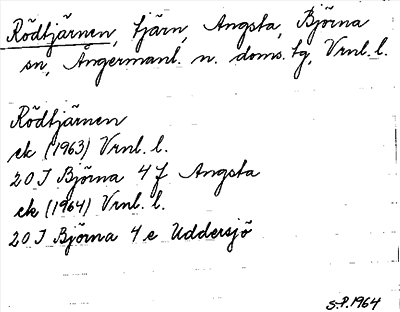 Rödtjärnen, tjärn, Angsta, Björna
sn, Ångermanl. n. doms. tg, Vrnl. l.
Rödtjärnen
ek (1963) Vrnl. l.
20 I Björna 4 f Angsta
ek (1964) Vrnl. l.
20 I Björna 4 e Uddersjö
S.P. 1964